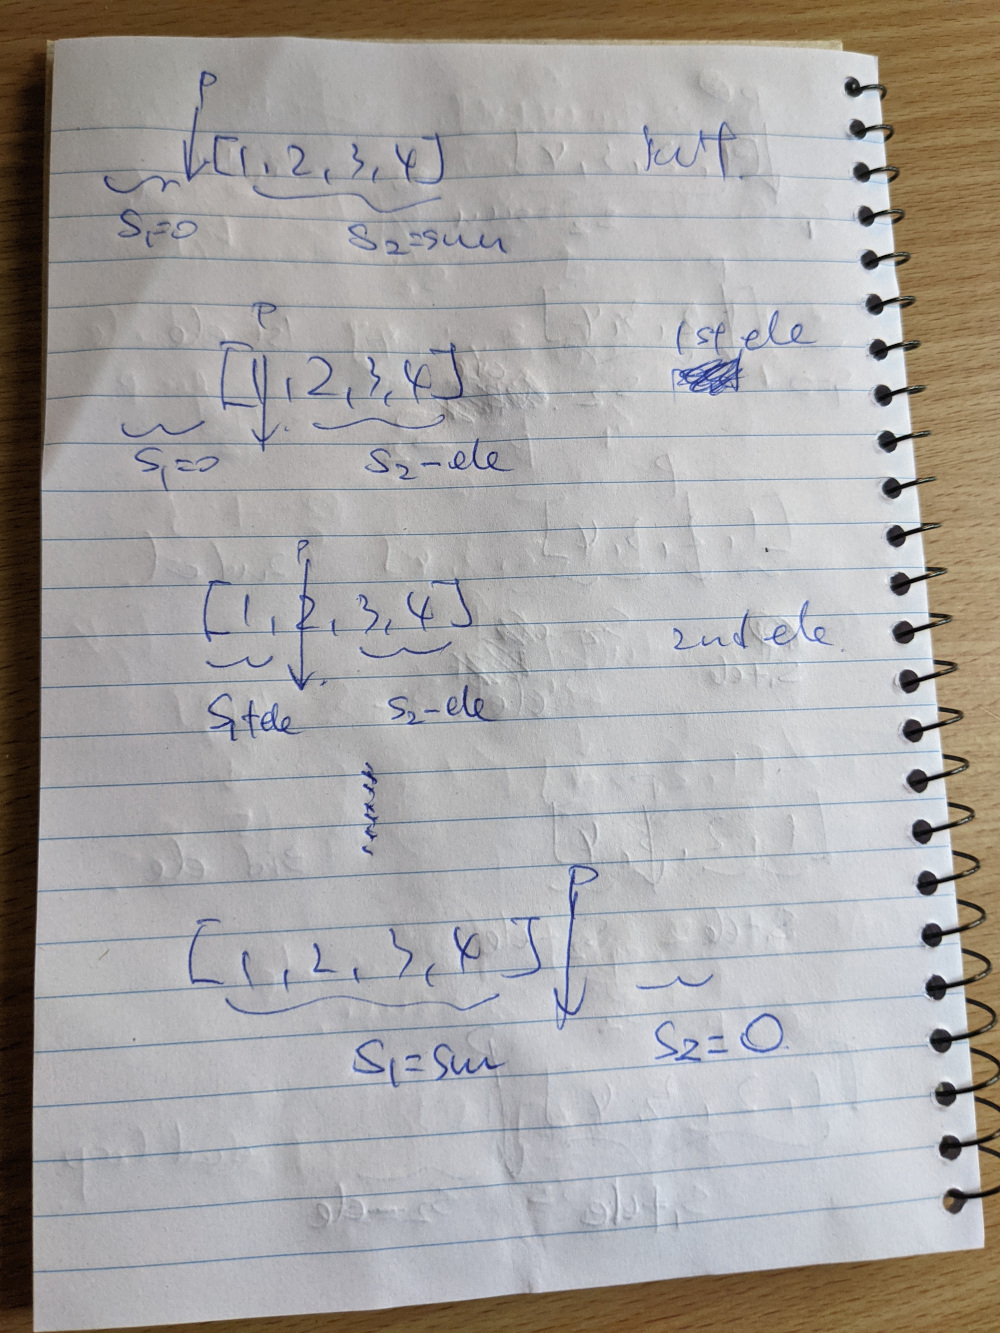 P
[1, 2, 3, 4]
S1=0 S2=sum
P
1st ele
[1, 2, 3, 4]
S1=0 S2-ele
P
[1, 2, 3, 4]
2nd ele
S1+ele S2-ele
P
[1, 2, 3, 4]
S1=sum S2=0